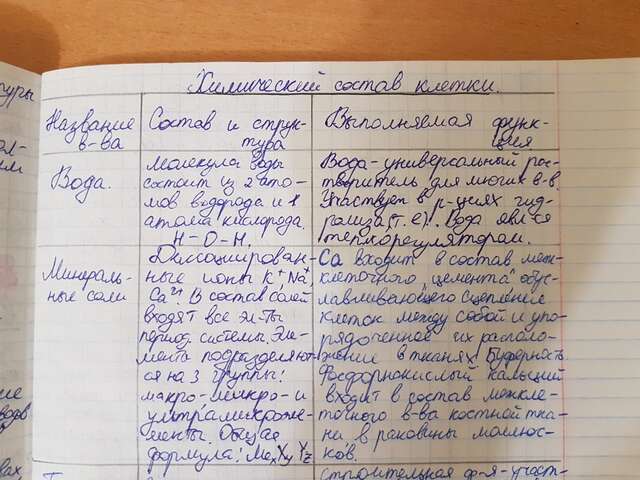 Химический состав клетки.
Название
в-ва
Состав и струк-
тура
Выполняемая функ-
ция
Вода.
Молекула воды
состоит из 2 ато-
мов водорода и 1
атома кислорода.
H-O-H.
Вода-универсальный рас-
творитель для многих в-в.
Участвует в р-циях гид-
ролиза(т.е). Вода явл-ся
теплорегулятором.
Минераль-
ные соли
Диссоциирован-
ные ионы K⁺, Na⁺,
Ca²⁺. В состав солей
входят все эл-ты
период. системы. Эле-
менты подразделяют-
ся на 3 группы:
макро-, микро- и
ультрамикроэле-
менты. Общая
формула: MexXyYz
Ca входит в состав меж-
клеточного "цемента", обус-
лавливающего сцепление
клеток между собой и упо-
рядоченное их располо-
жение в тканях. Буферность
Фосфорнокислый кальций
входит в состав межкле-
точного в-ва костной тка-
ни, в раковины моллюс-
ков.
строительная ф-я-участ-